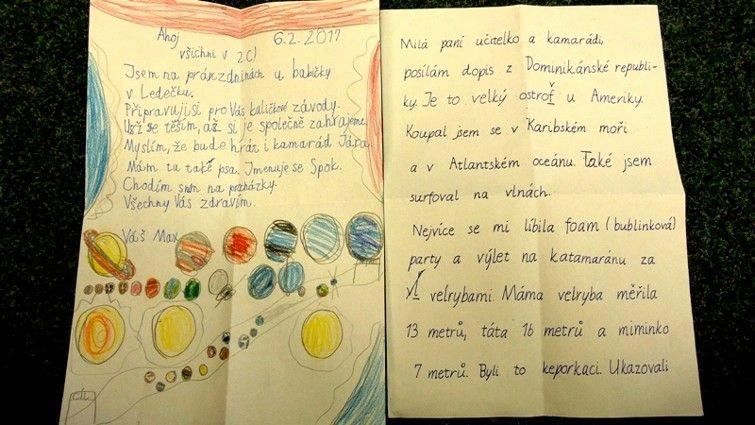 Ahoj 6.2.2017
všichni v 2C!
Jsem na prázdninách u babičky
v Ledečku.
Připravuji si pro Vás kaličkové závody.
Už se těším, až si je společně zahrajeme.
Myslím, že bude hrát i kamarád Jára.
Mám tu také psa. Jmenuje se Spok.
Chodím s ním na procházky.
Všechny Vás zdravím.
Váš Max
Milá paní učitelko a kamarádi,
posílám dopis z Dominikánské republi-
ky. Je to velký ostrov u Ameriky.
Koupal jsem se v Karibském moři
a v Atlantském oceánu. Také jsem
surfoval na vlnách.
Nejvíce se mi líbila foam (bublinková)
party a výlet na katamaránu za
velrybami. Máma velryba měřila
13 metrů, táta 16 metrů a miminko
7 metrů. Byli to keporkaci. Ukazovali